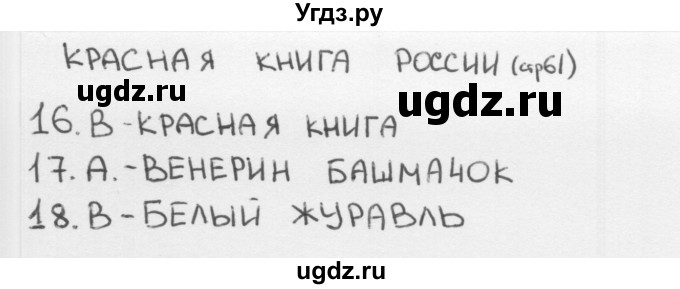 Угдз.ру
КРАСНАЯ КНИГА РОССИИ (стр61)
ugdz.ru ugdz.ru
16. В - КРАСНАЯ КНИГА
17. А. - ВЕНЕРИН БАШМАЧОК
18. В - БЕЛЫЙ ЖУРАВЛЬ
ugdz.ru